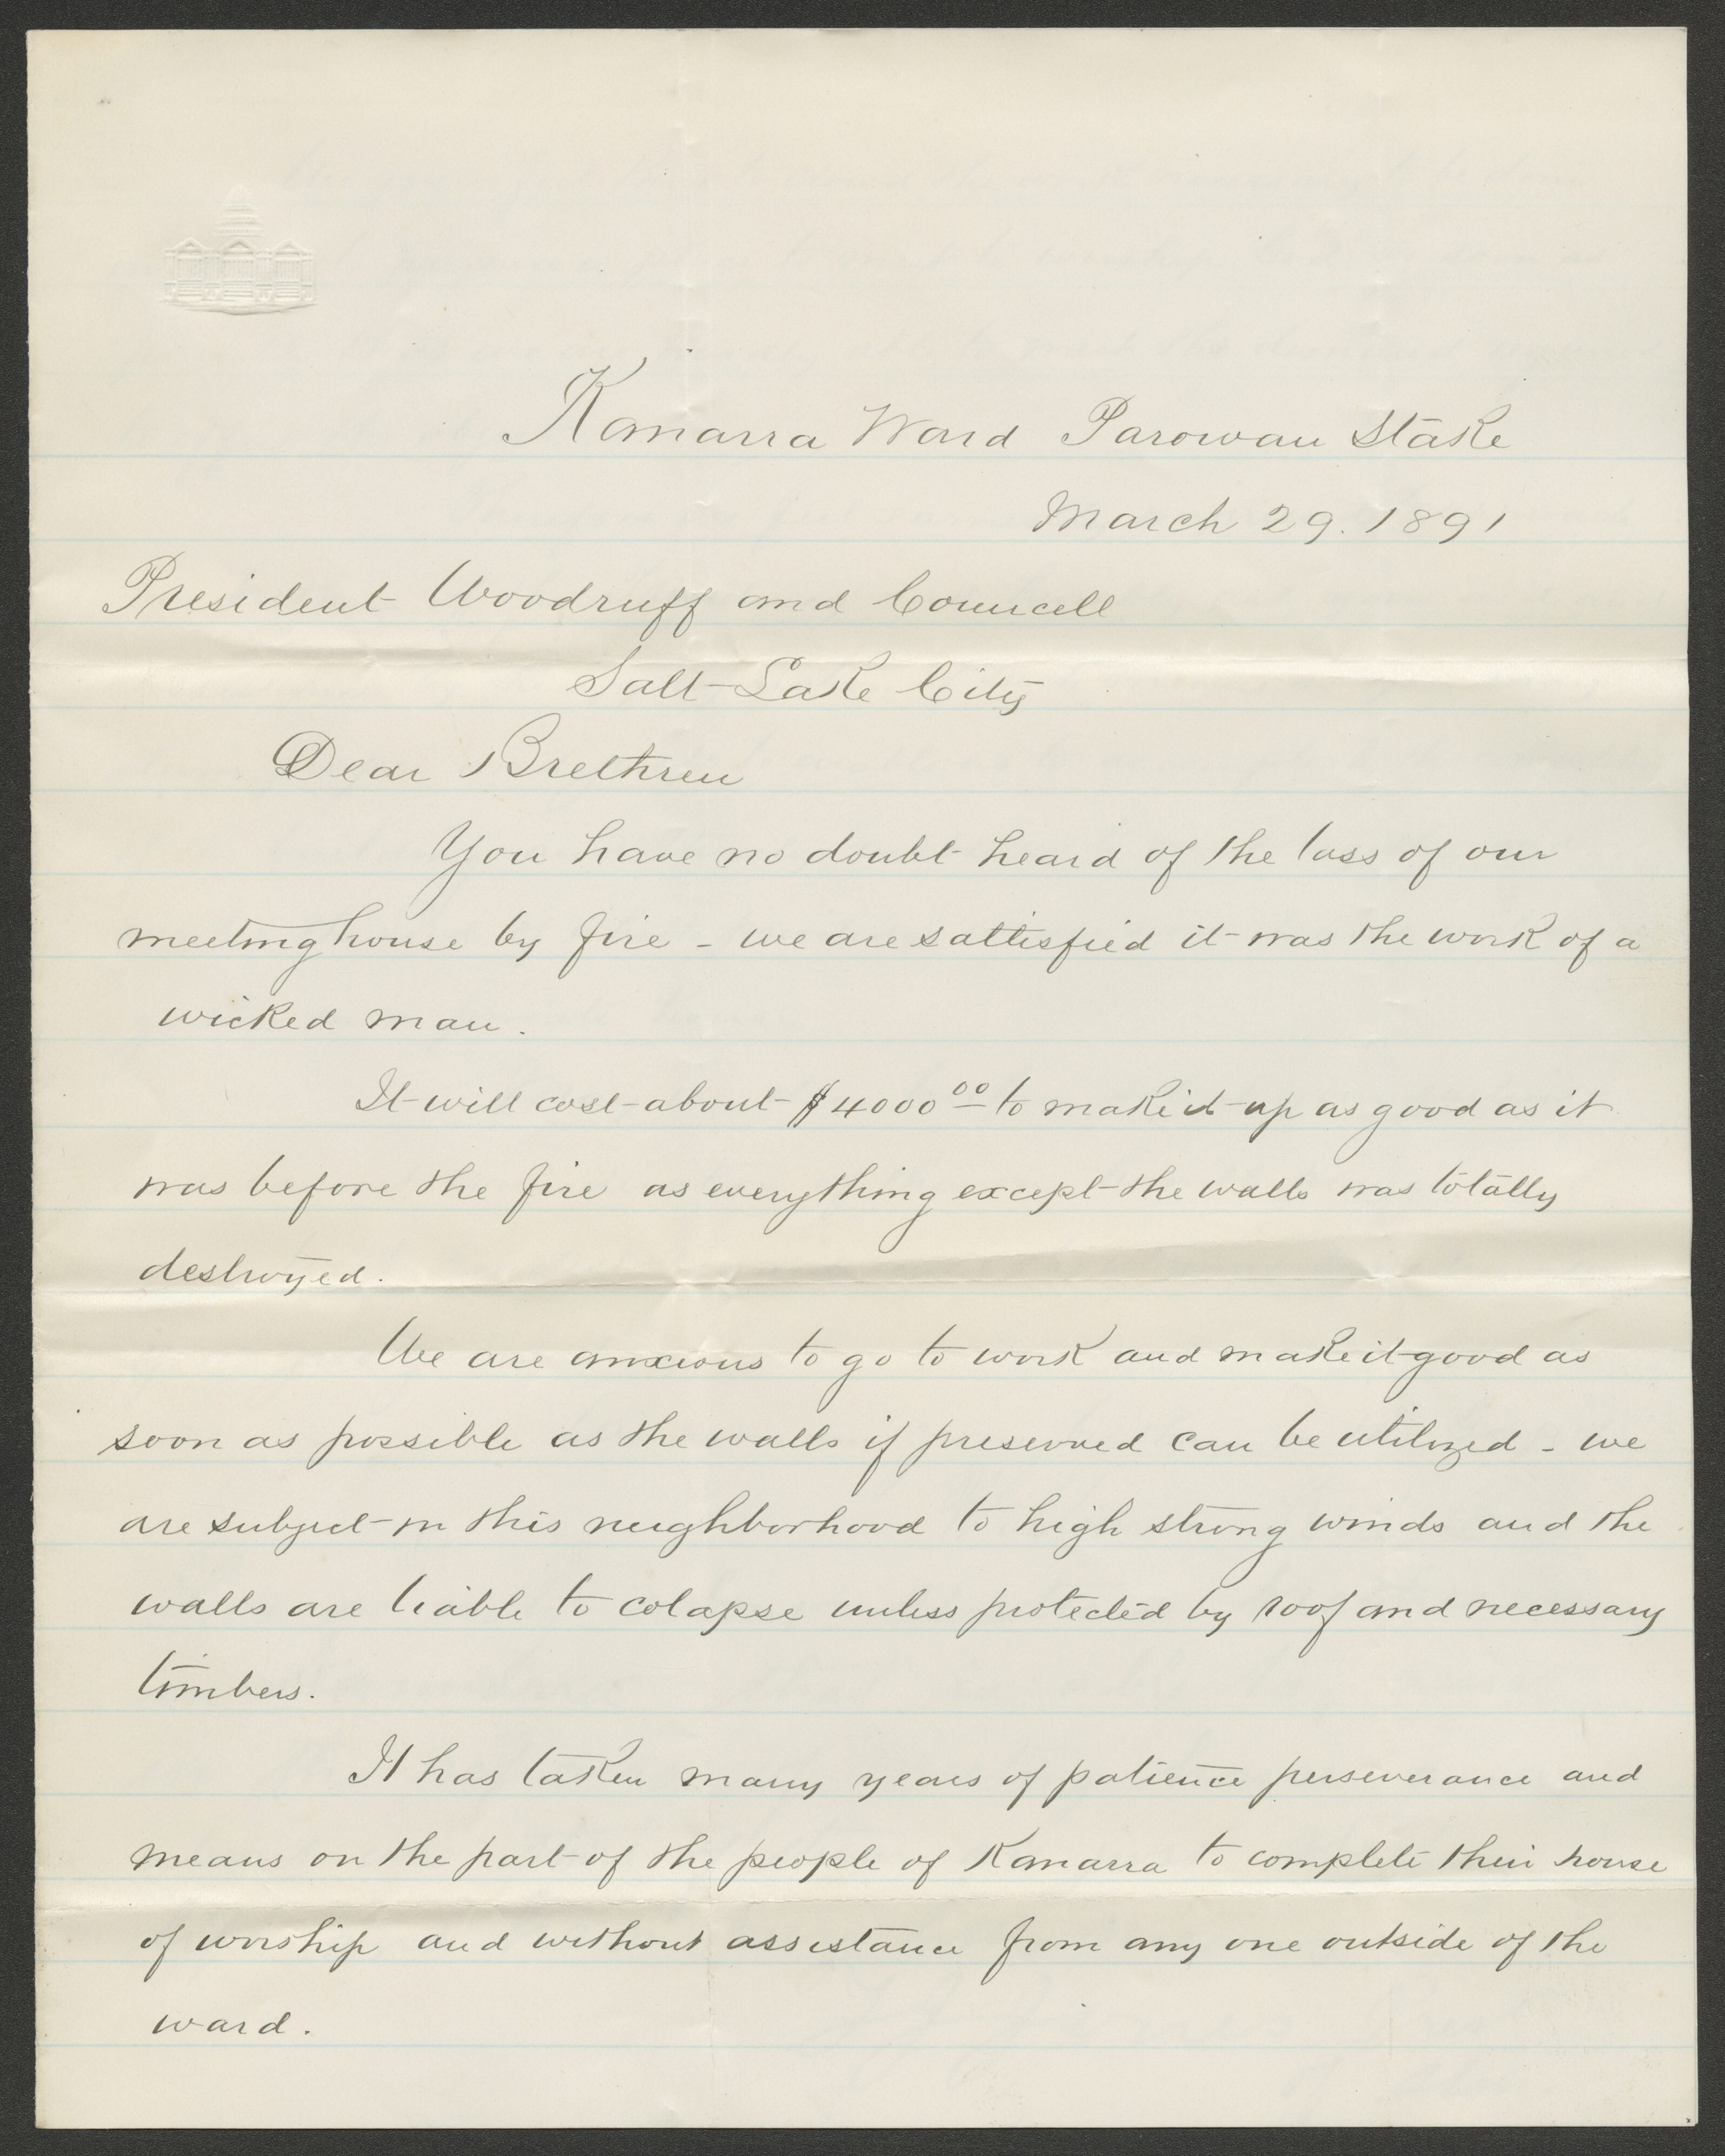 Kanarra Ward Parowan Stake
March 29. 1891
President Woodruff and Councell
Salt Lake City
Dear Brethren
You have no doubt heard of the loss of our
meeting house by fire - we are sattisfied it was the work of a
wicked man.
It will cost about $4000 00 to make it up as good as it
was before the fire as everything except the walls was totally
destroyed.
We are anxious to go to work and make it good as
soon as possible as the walls if preserved can be utilized - we
are subject in this neighborhood to high strong winds and the
walls are liable to colapse unless protected by roof and necessary
timbers.
It has taken many years of patience perseverance and
means on the part of the people of Kanarra to complete their house
of worship and without assistance from any one outside of the
ward.